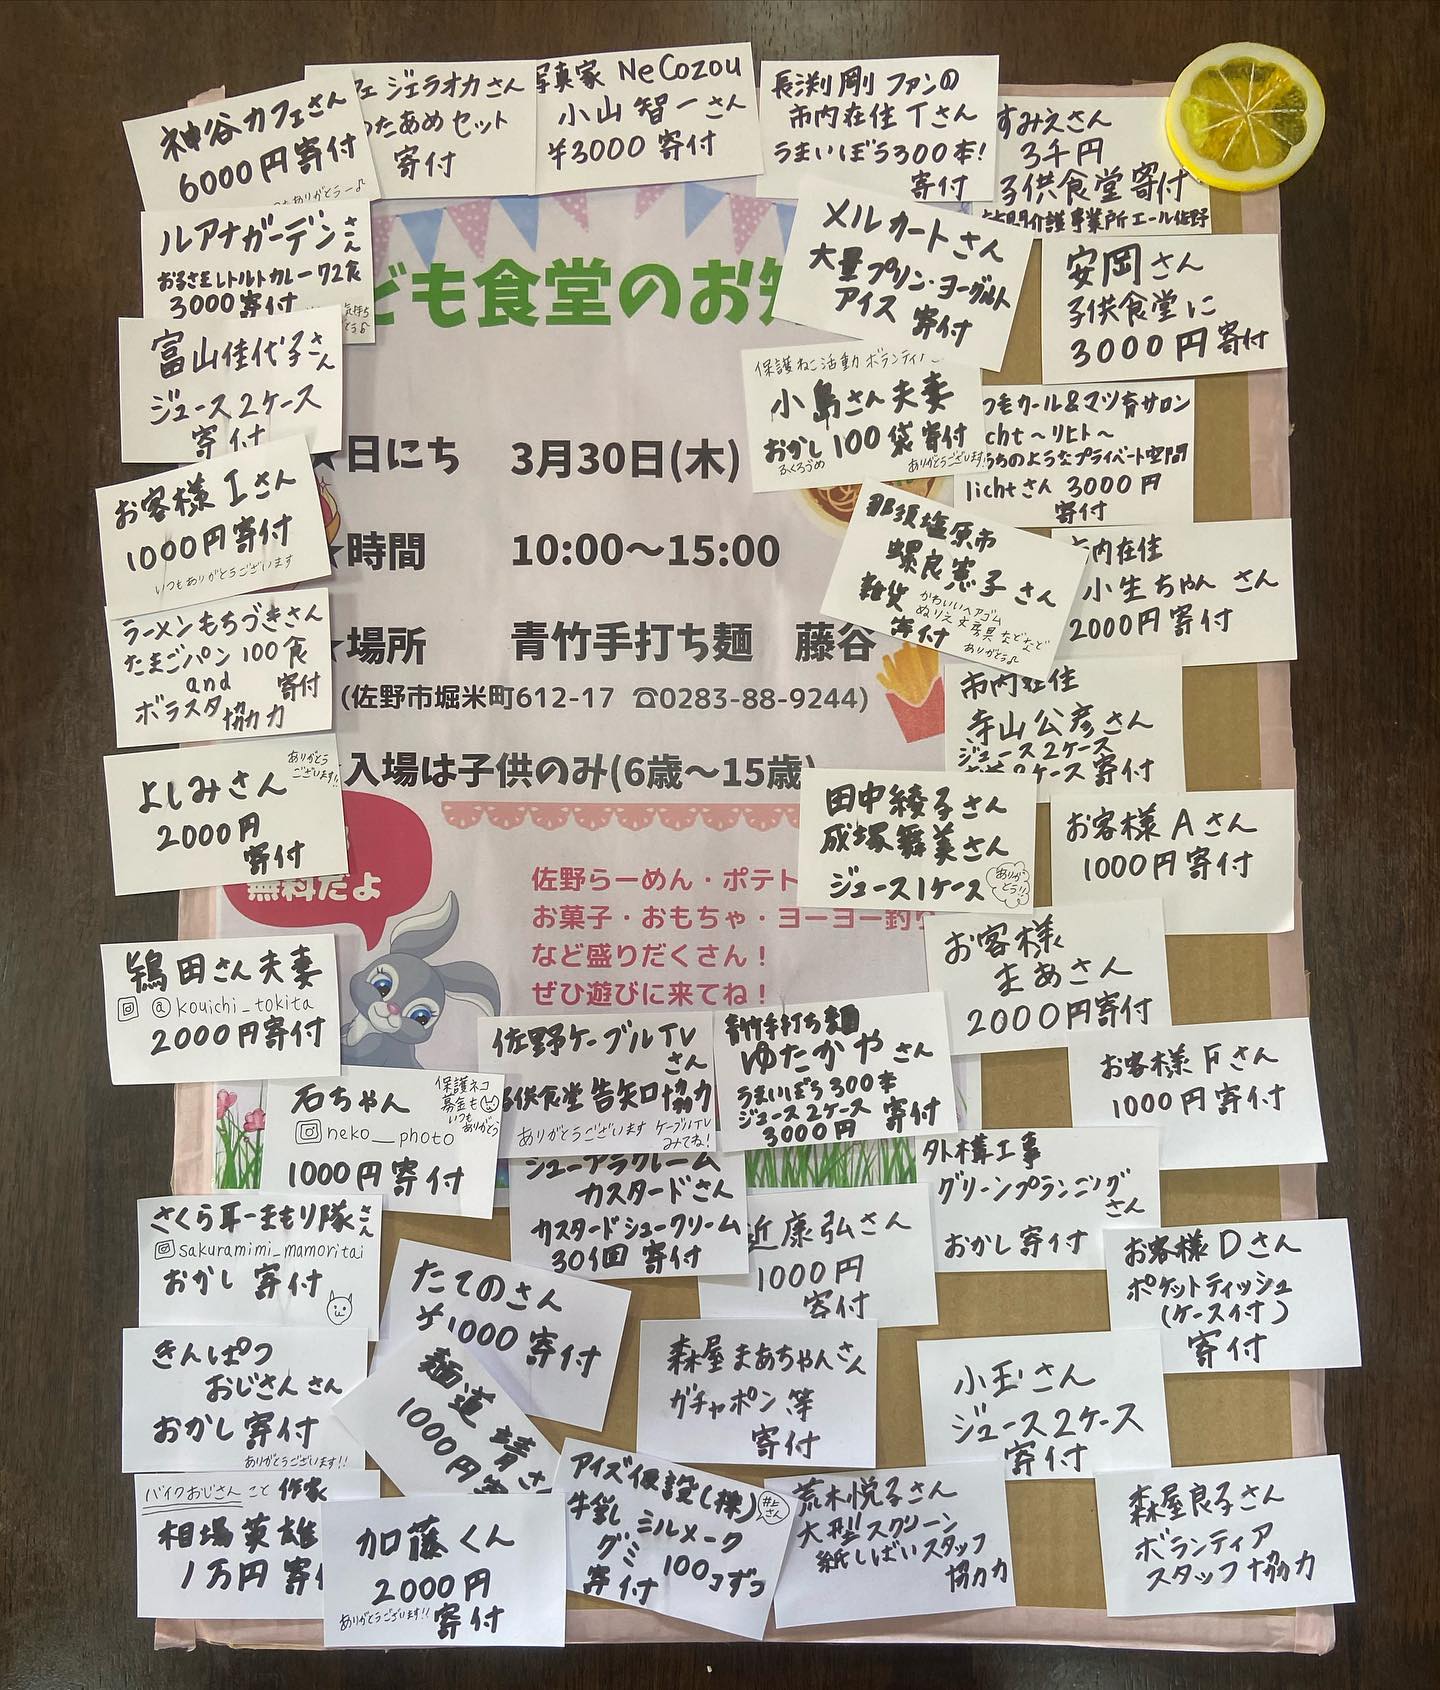 神谷カフェさん
6000円寄付
ジェラオカさん
わたあめセット
寄付
写真家 NeCozou
小山智一さん
¥3000 寄付
長渕剛 ファンの
市内在住Tさん
うまいぼう300本!
寄付
すみえさん
3千円
子供食堂寄付
訪問介護事業所エール佐野
ルアナガーデンさん
お子さまレトルトカレー72食
3000寄付
ども食堂のお知
メルカートさん
大量プリン・ヨーグルト
アイス 寄付
安岡さん
子供食堂に
3000円寄付
富山佳代子さん
ジュース2ケース
寄付
保護ねこ活動 ボランティア
小島さん夫妻
おかし100袋寄付
ふくろづめ
ありがとうございます!
つもカール&マツ育サロン
icht～リヒト～
うちのようなプライベート空間
lichtさん 3000円
寄付
★日にち 3月30日(木)
お客様Iさん
1000円寄付
いつもありがとうございます
★時間 10:00～15:00
那須塩原市
螺良憲子さん
雑貨 かわいいヘアゴム
ぬりえ文房具などなど
寄付 ありがとう♪
市内在住
小生ちゃん さん
2000円寄付
ラーメンもちづきさん
たまごパン100食
and 寄付
ボラスタ協力
★場所 青竹手打ち麺 藤谷
(佐野市堀米町612-17 ☎0283-88-9244)
市内在住
寺山公彦さん
ジュース2ケース
2ケース寄付
入場は子供のみ(6歳～15歳)
よしみさん
ありがとうございます!!
2000円
寄付
田中綾子さん
成塚舞美さん
ジュース1ケース
ありがとう!!
お客様Aさん
1000円寄付
無料だよ
佐野らーめん・ポテト
お菓子・おもちゃ・ヨーヨー釣り
など盛りだくさん!
ぜひ遊びに来てね!
鴇田さん夫妻
@kouichi_tokita
2000円寄付
お客様
まあさん
2000円寄付
佐野ケーブルTV
さん
子供食堂 告知協力
ありがとうございます ケーブルTV
みてね!
青竹手打ち麺
ゆたかやさん
うまいぼう300本
ジュース2ケース
3000円 寄付
お客様Fさん
1000円寄付
石ちゃん
保護ネコ
募金も
いつも
ありがとう
neko__photo
1000円寄付
シューアラクレーム
カスタードさん
カスタードシュークリーム
30個 寄付
外構工事
グリーンプランニング
さん
おかし寄付
近康弘さん
1000円
寄付
さくら耳ーまもり隊さん
@sakuramimi_mamoritai
おかし寄付
お客様Dさん
ポケットティッシュ
(ケース付)
寄付
たてのさん
¥1000寄付
きんぱつ
おじさんさん
おかし寄付
ありがとうございます!!
麺道 靖さ
1000円寄
森屋まあちゃんさん
ガチャポン等
寄付
小玉さん
ジュース2ケース
寄付
バイクおじさんこと 作家
相場英雄
1万円寄
加藤くん
2000円
ありがとうございます!! 寄付
アイズ仮設(株)
井上さん
牛乳 ミルメーク
グミ 100コずつ
寄付
荒木悦子さん
大型スクリーン
紙しばいスタッフ
協力
森屋良子さん
ボランティア
スタッフ協力